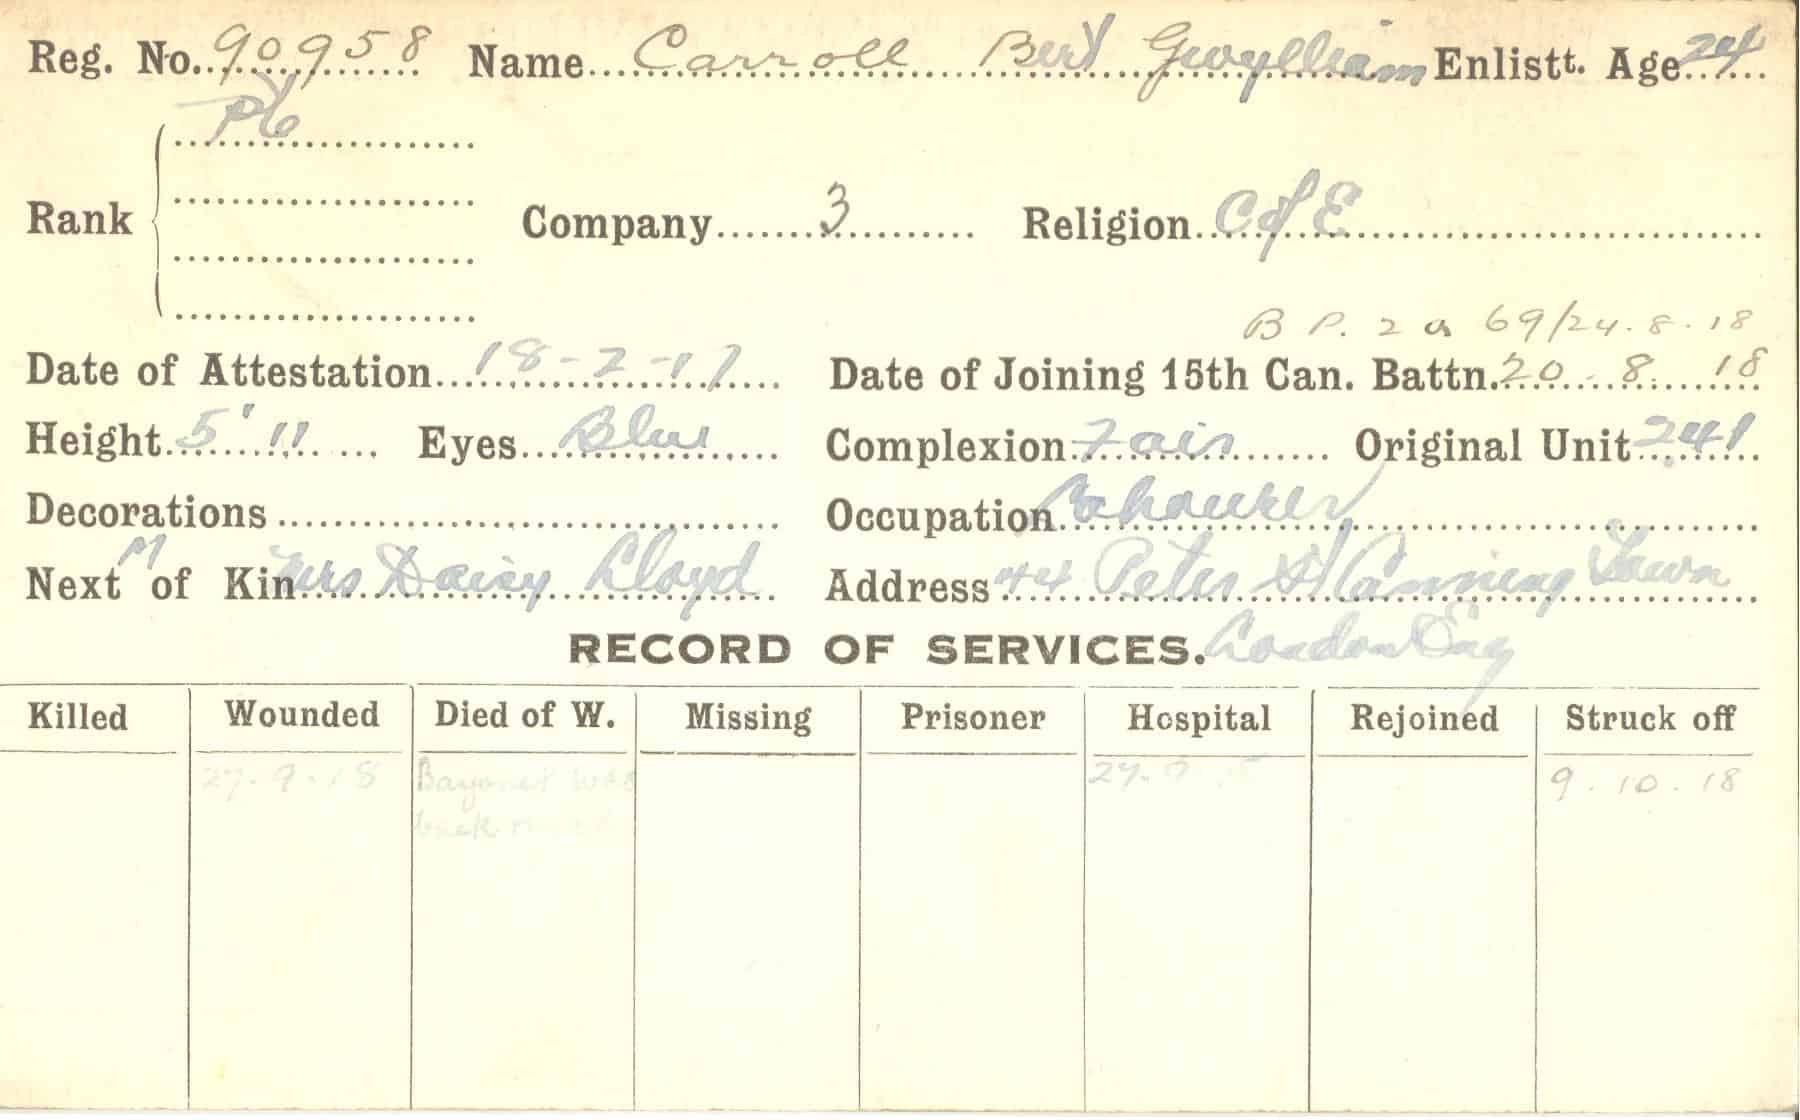 Reg. No. 90958 Name Carroll Bert Gwylliam Enlistt. Age 24
Pte
Rank Company 3 Religion C of E
B P. 2 a 69/24.8.18
Date of Attestation 18-2-17 Date of Joining 15th Can. Battn. 20 . 8 . 18
Height 5' 11 Eyes Blue Complexion Fair Original Unit 241
Decorations Occupation Labourer
Next of Kin Mrs Daisy Lloyd Address 44 Peter St Canning Town
RECORD OF SERVICES. London Eng
Killed Wounded Died of W. Missing Prisoner Hospital Rejoined Struck off
27.9.18 Bayonet 9.10.18
back